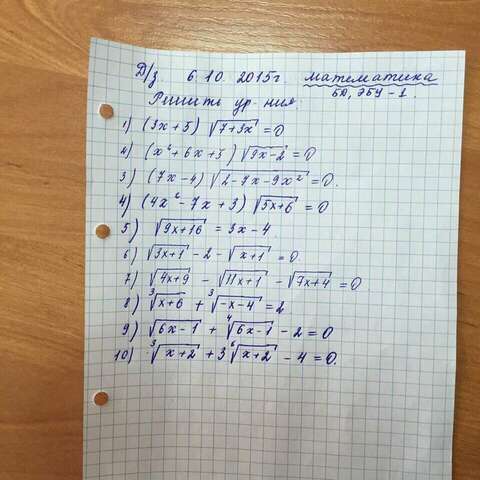 Д/з 6.10.2015г. математика
БД, ЭБУ-1.
Решить ур-ния:
1) (3x+5) √(7+3x) = 0
2) (x²+6x+5) √(9x-2) = 0
3) (7x-4) √(2-7x-9x²) = 0.
4) (4x²-7x+3) √(5x+6) = 0
5) √(9x+16) = 3x-4
6) √(3x+1) - 2 - √(x+1) = 0.
7) √(4x+9) - √(11x+1) - √(7x+4) = 0
8) ³√(x+6) + ³√(-x-4) = 2
9) √(6x-1) + ⁴√(6x-1) - 2 = 0
10) ³√(x+2) + 3 ⁶√(x+2) - 4 = 0.